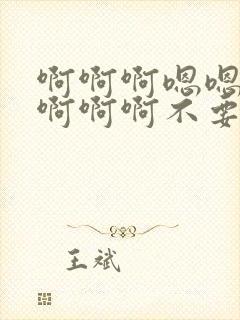 啊啊啊嗯嗯
啊啊啊不要
王斌